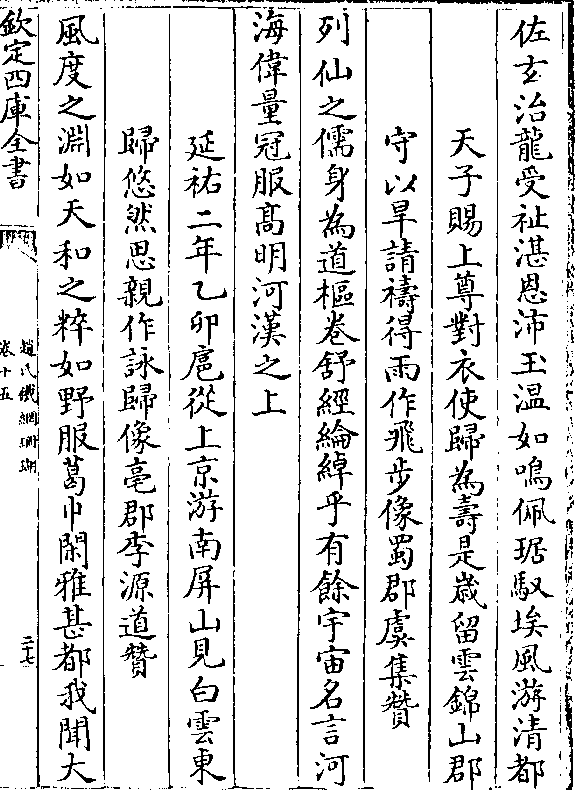 佐玄治龍受祉湛恩沛玉溫如鳴佩琚馭埃風游清都
天子賜上尊對衣使歸為壽是歲留雲錦山郡
守以旱請禱得雨作飛步像蜀郡虞集贊
列仙之儒身為道樞卷舒經綸綽乎有餘宇宙名言河
海偉量冠服髙明河漢之上
延祐二年乙卯扈從上京游南屏山見白雲東
歸悠然思親作詠歸像亳郡李源道贊
風度之淵如天和之粹如野服葛巾閑雅甚都我聞大
欽定四庫全書
趙氏鐵網珊瑚
卷十五
二十七